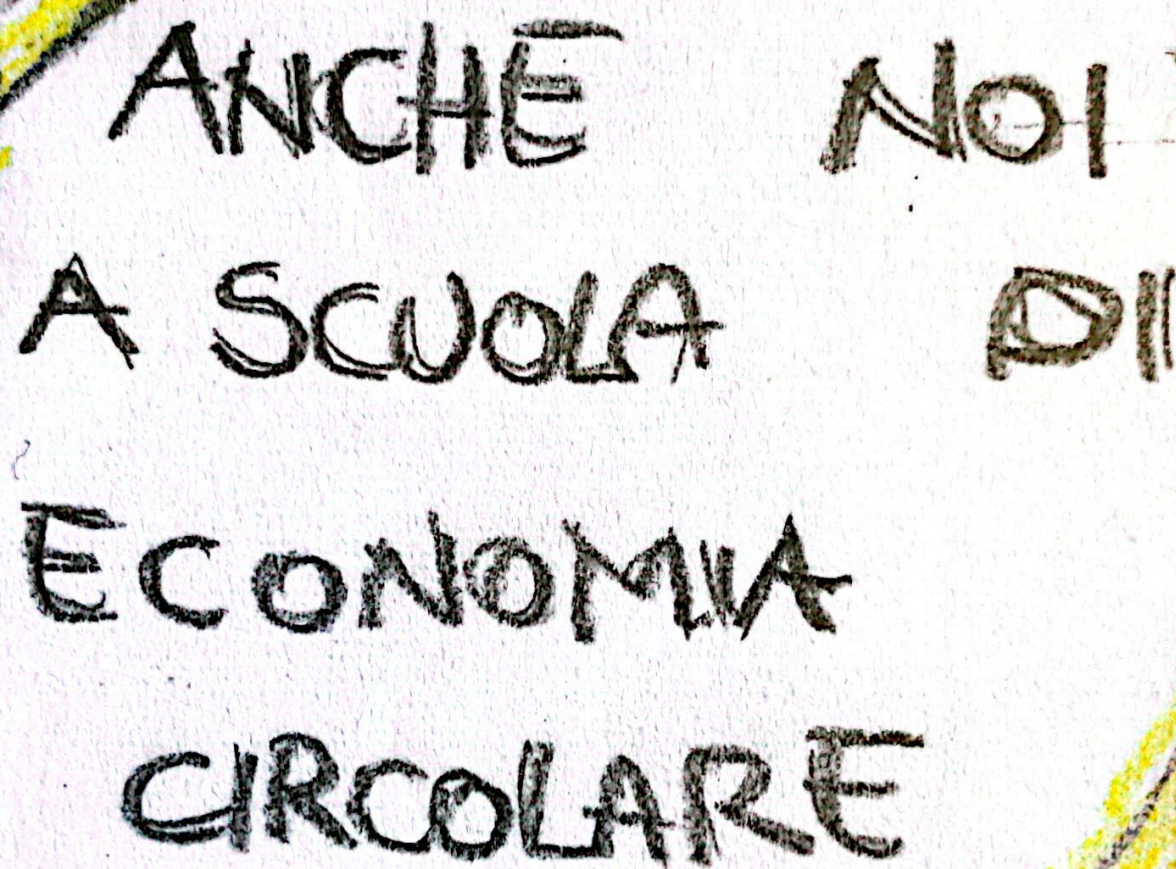 ANCHE NOI
A SCUOLA DI
ECONOMIA
CIRCOLARE